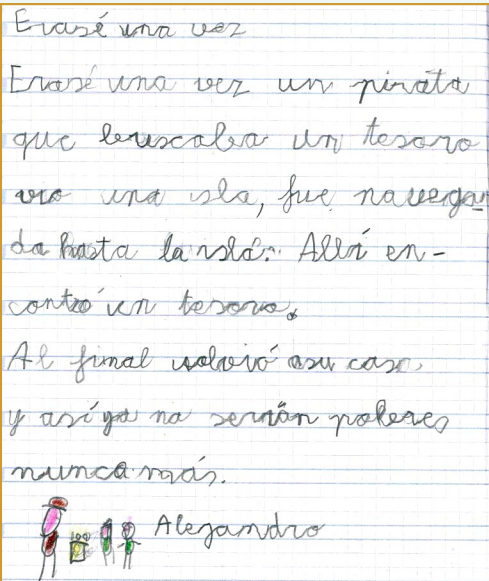 Erasé una vez
Erasé una vez un pirata
que buscaba un tesoro
vio una isla, fue navegan
do hasta la isla. Allí en-
contró un tesoro.
Al final volvió a su casa
y así ya no serían pobres
nunca más.
Alejandro